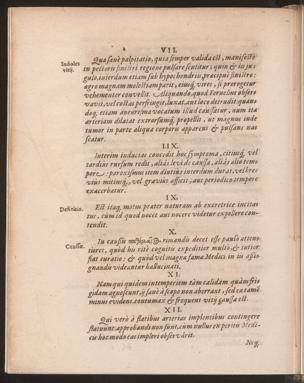 VII.
Indoles vitij.
Quæ sanè palpitatio, quia semper valida est, manifestò
in pectoris sinistri regione pulsare sentitur: quin & in ju-
gulo, interdum etiam sub hypochondrio, præcipuè sinistro:
ægro magnam molestiam parit, eumq́, viret, si prorogetur
vehementer convellit. Aliquando, quod Fernelius obser-
vavit, vel costas perfringit, luxat, aut loco detrudit: quan-
doq́, etiam aneurisma vocatum
arteriam dilatat extrorsumq́, propellit, ut magnus inde
tumor in parte aliqua corporis apparens & pulsans nas-
catur.
IIX.
Interim inducias concedit hoc symptoma, citiusq́, vel
tardius rursum redit, aliàs levi de causa, aliàs alio tem-
pore: paroxismus item diutius interdum durat, vel bre-
vius mitiusq́, vel gravius afficit, aut periodico tempore
exacerbatur.
IX.
Definitio.
Est itaq́, motus præter naturam ab excretrice incita-
tus, cùm id quod nocet aut nocere videtur expellere con-
tendit.
X.
Causæ.
In causis rimandis decet esse paulò atten-
tiores, quòd his ritè cognitis expeditior multò & tutior
fiat curatio: & quòd vel magna fama Medici in iis assig-
nandis videantur hallucinati.
XI.
Nam qui quidem intemperiem tàm calidam quàm fri-
gidam agnoscunt, ij sanè à scopo non aberrant, sed ea tamè
minus evidens, continuax & frequens vitij causa est.
XII.
Qui verò à flatibus arterias implentibus contingere
statuunt, approbandi non sunt, cùm nullus expertus Medi-
cis hoc modo eas impleri observârit.
Neq́,